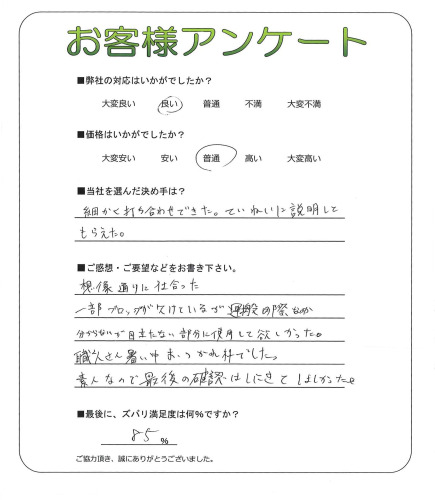 お客様アンケート
■弊社の対応はいかがでしたか？
大変良い 良い 普通 不満 大変不満
■価格はいかがでしたか？
大変安い 安い 普通 高い 大変高い
■当社を選んだ決め手は？
細かく打ち合わせできた。ていねいに説明して
もらえた。
■ご感想・ご要望などをお書き下さい。
想像通りに仕合った
一部ブロックが欠けているが運搬の際なのか
分からないが目立たない部分に使用して欲しかった。
職人さん暑い中おつかれ様でした。
素人なので最後の確認はしにきてほしかった。
■最後に、ズバリ満足度は何％ですか？
85％
ご協力頂き、誠にありがとうございました。